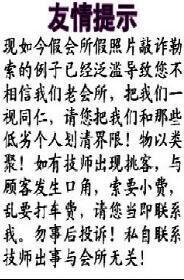 友情提示
现如今假会所假照片敲诈勒
索的例子已经泛滥导致您不
相信我们老会所，把我们一
视同仁，请您把我们和那些
低劣个人划清界限！物以类
聚！如有技师出现挑客，与
顾客发生口角，索要小费，
乱要打车费，请您当即联系
我。勿事后投诉！私自联系
技师出事与会所无关！